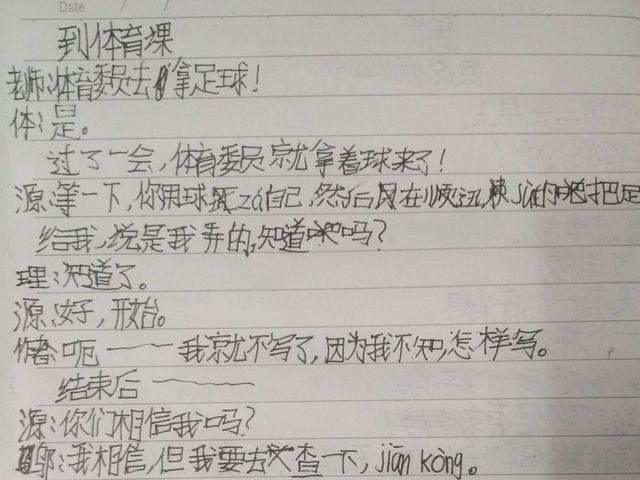 Date
到体育课
老师:体育委员去拿足球!
体:是。
过了一会,体育委员就拿着球来了!
源:等一下,你用球zá自己,然后在把足
给我,说是我弄的,知道吗?
理:知道了。
源:好,开始。
作者:呃——我就不写了,因为我不知,怎样写。
结束后——
源:你们相信我吗?
:我相信,但我要去查一下,jiān kòng。